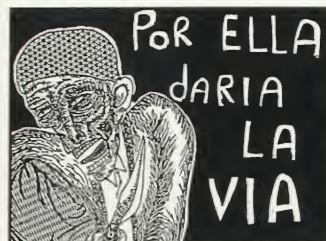 POR ELLA
dARIA
LA
VIA